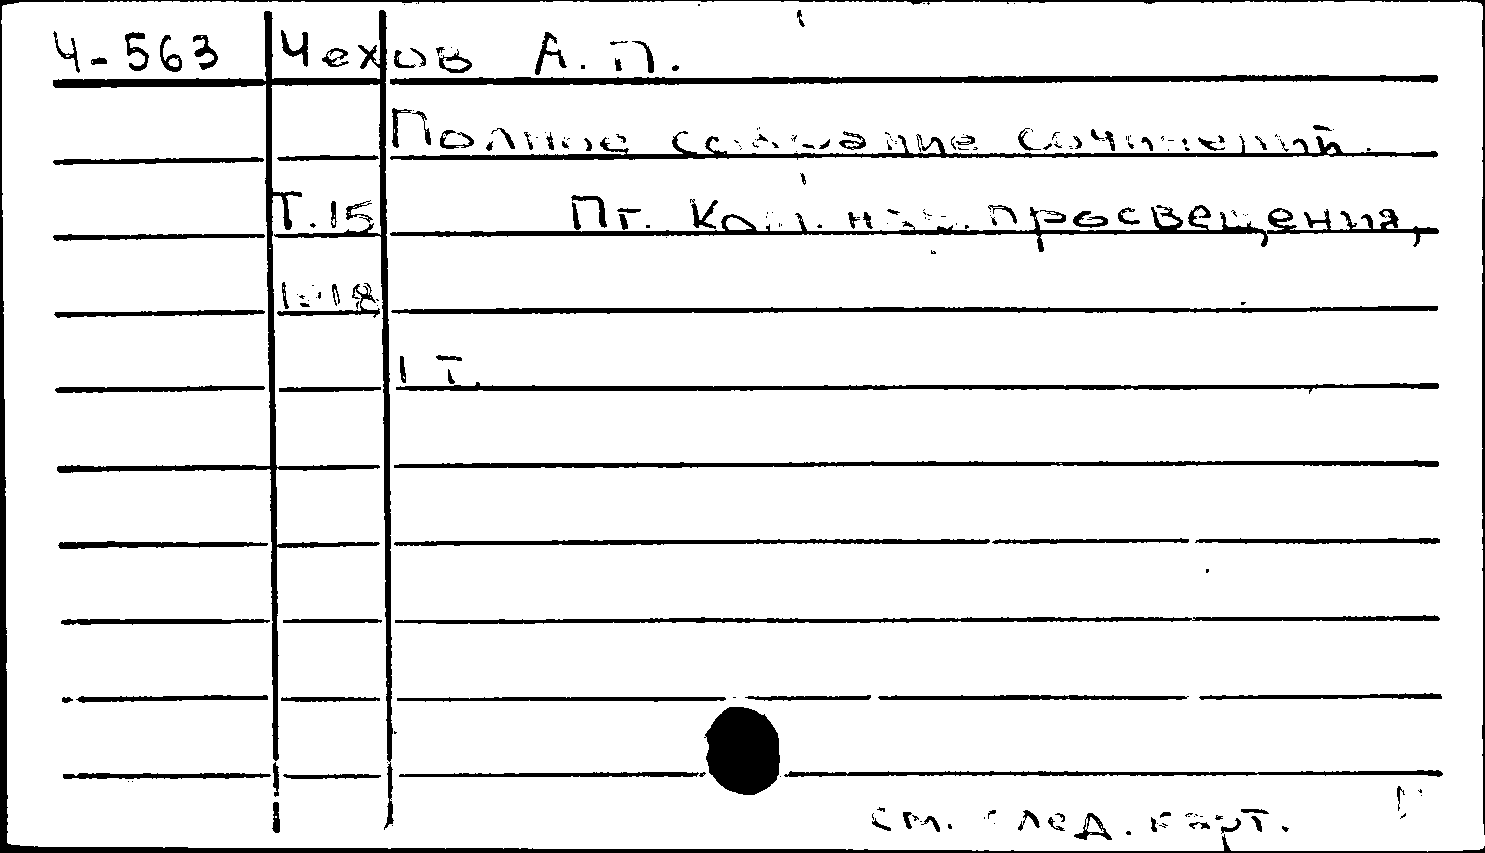 Ч-563 Чехов А. П.
Полное собрание сочинений.
Т.15 Пг. Ком. нар. просвещения,
1918
1 т.
см. след. карт.